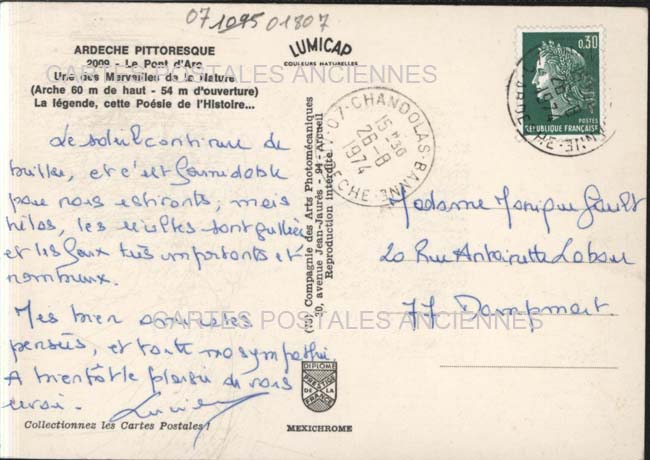 07 1095 01807
ARDECHE PITTORESQUE
2009 - Le Pont d'Arc
Une des Merveilles de la Nature
(Arche 60 m de haut - 54 m d'ouverture)
La légende, cette Poésie de l'Histoire...
LUMICAP
COULEURS NATURELLES
CARTES POSTALES ANCIENNES
Le soleil continue de
briller, et c'est formidable
pour nos estivants; mais
hélas, les récoltes sont grillées
et les feux très importants et
nombreux.
Mes bien amicales
pensées, et toute ma sympathie
A bientôt le plaisir de vous
revoir.
Collectionnez les Cartes Postales !
(10) Compagnie des Arts Photomécaniques
20, avenue Jean-Jaurès - 94 - Arcueil
Reproduction interdite.
DIPLOME
PRESTIGE
DE LA
FRANCE
MEXICHROME
07-CHANDOLAS-BANNE
15 H 30
26-8
1974
ARDECHE
0,30
POSTES
REPUBLIQUE FRANÇAISE
26-8
1974
ARDECHE
Madame Monique Gault
20 Rue Antoinette
77 Dampmart
CARTES POSTALES ANCIENNES